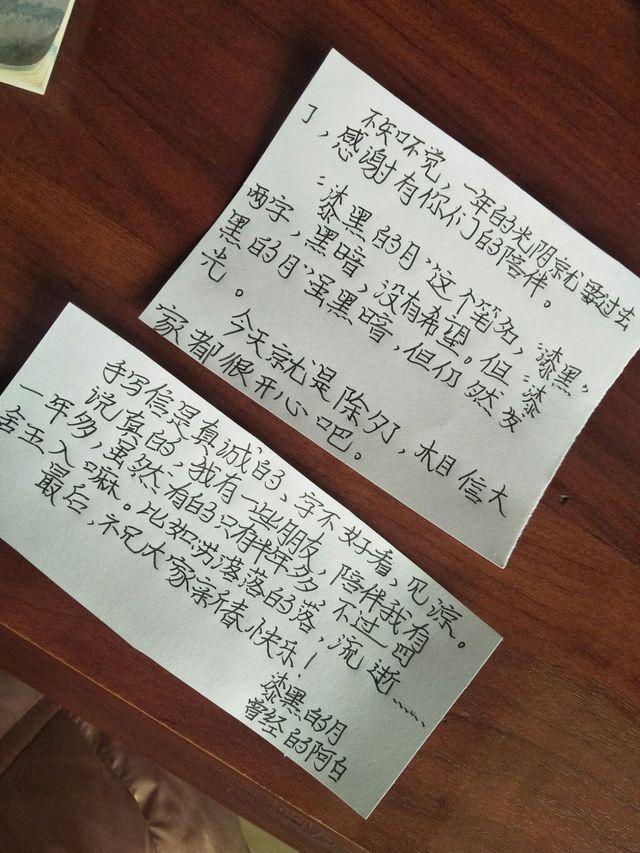 不知不觉，一年的光阴就要过去
了，感谢有你们的陪伴。
“漆黑的月”这个笔名，“漆黑”
两字，黑暗，没有希望。但“漆
黑的月”虽黑暗，但仍然发
光。
今天就是除夕，相信大
家都很开心吧。
手写信是真诚的、字不好看，见谅。
说真的，我有一些朋友，陪伴我有
一年多，虽然有的只有半年多，不过四
舍五入嘛。比如苏落落的落，流逝……
最后，祝大家新春快乐！
漆黑的月
曾经的阿白